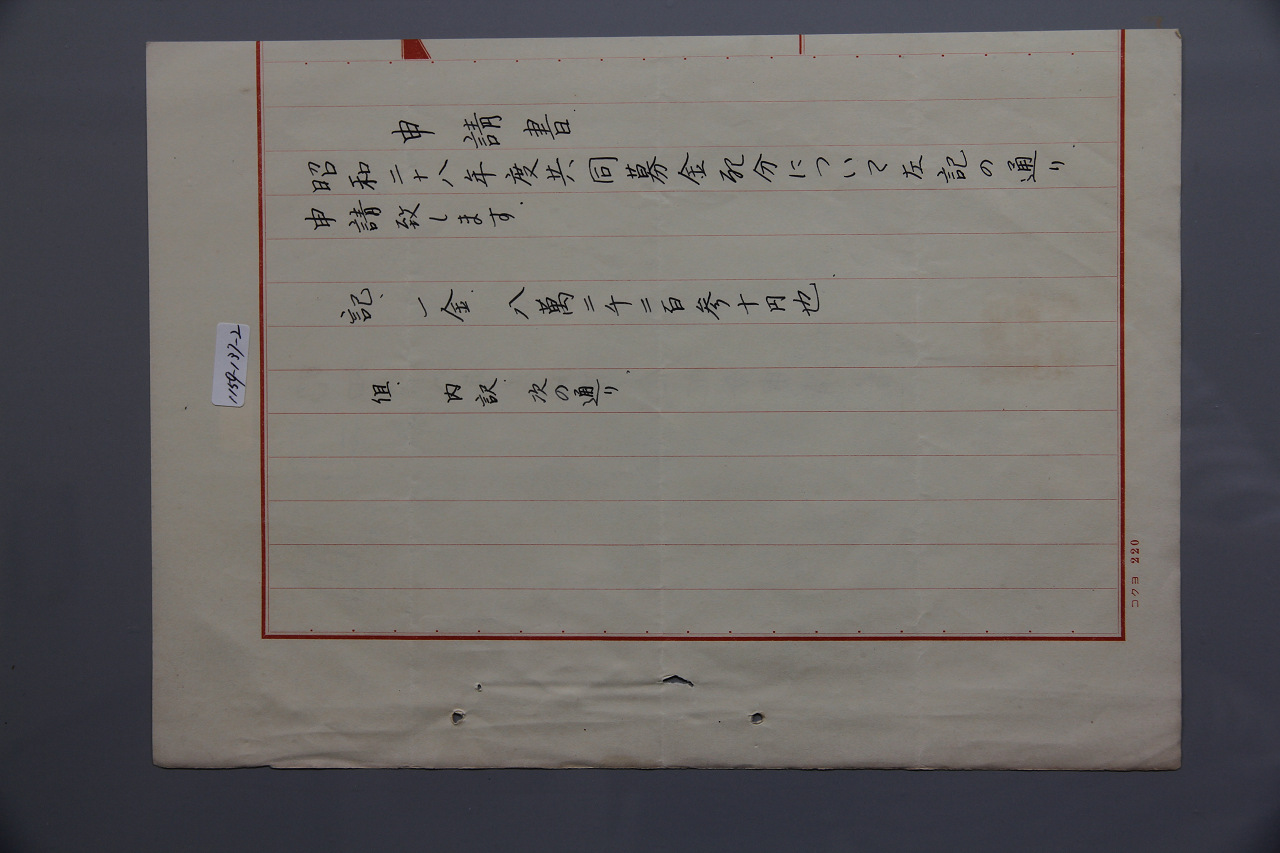 申請書
昭和二十八年度共同募金配分について左記の通り
申請致します.
記、一金 八萬二千二百参十円也
但. 内訳 次の通り
1159-137-2
コクヨ 220